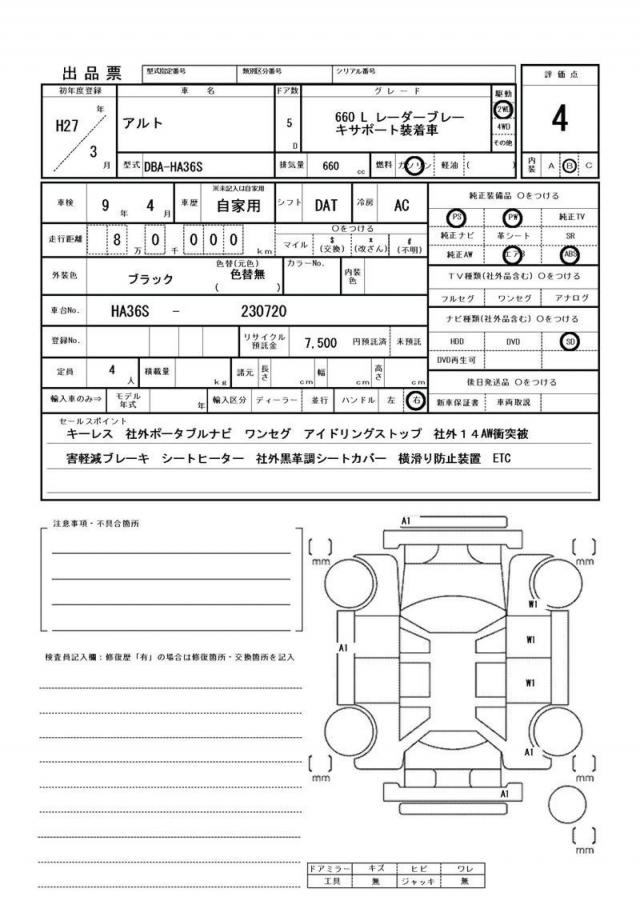 出品票
型式指定番号 類別区分番号 シリアル番号
評価点
4
初年度登録 車名 ドア数 グレード 駆動
H27 年 / 3 月
アルト
5 D
660 L レーダーブレー
キサポート装着車
2WD
4WD
その他
型式 DBA-HA36S 排気量 660 cc 燃料 ガソリン 軽油 ( )
内装 A B C
車検 9 年 4 月 車歴 ※未記入は自家用 自家用 シフト DAT 冷房 AC
走行距離 8 万 0 千 0 0 0 km
〇をつける
マイル $ (交換) * (改ざん) # (不明)
外装色 ブラック 色替(元色) 色替無 ( ) カラーNo. 内装色
車台No. HA36S - 230720
登録No. リサイクル預託金 7,500 円預託済 未預託
定員 4 人 積載量 kg 諸元 長さ cm 幅 cm 高さ cm
輸入車のみ⇒ モデル年式 年 輸入区分 ディーラー 並行 ハンドル 左 右
純正装備品 〇をつける
PS PW 純正TV
純正ナビ 革シート SR
純正AW エアB ABS
TV種類(社外品含む) 〇をつける
フルセグ ワンセグ アナログ
ナビ種類(社外品含む) 〇をつける
HDD DVD SD
DVD再生可
後日発送品 〇をつける
新車保証書 車両取説
セールスポイント
キーレス 社外ポータブルナビ ワンセグ アイドリングストップ 社外14AW衝突被
害軽減ブレーキ シートヒーター 社外黒革調シートカバー 横滑り防止装置 ETC
注意事項・不具合箇所
検査員記入欄:修復歴「有」の場合は修復箇所・交換箇所を記入
A1
[ ] mm
[ ] mm
W1
A1
W1
W1
A1
[ ] mm
[ ] mm
A1
[ ] mm
ドアミラー キズ ヒビ ワレ
工具 無 ジャッキ 無